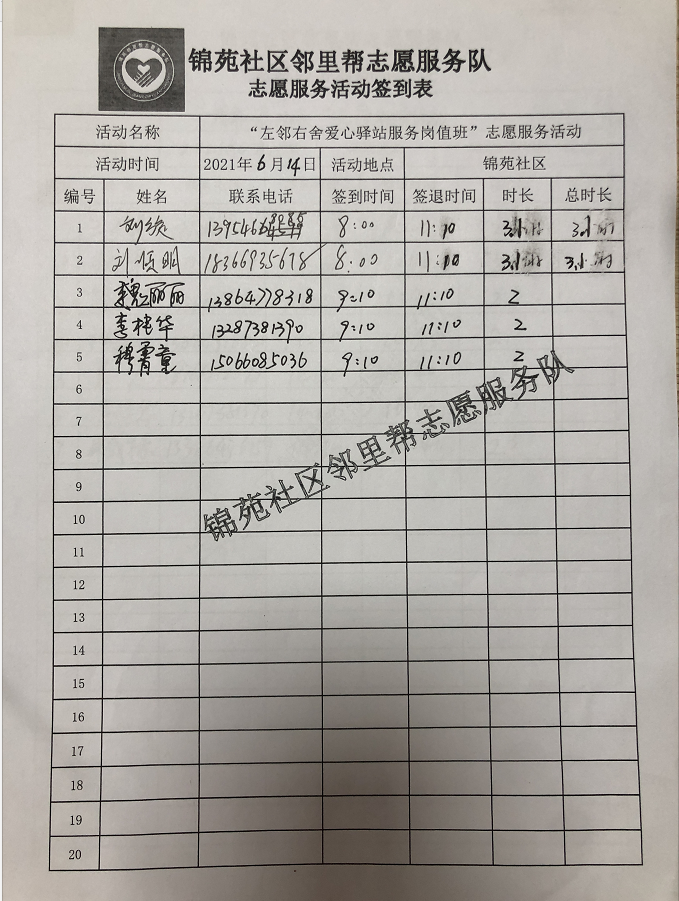 锦苑社区邻里帮志愿服务队
志愿服务活动签到表
活动名称 “左邻右舍爱心驿站服务岗值班”志愿服务活动
活动时间 2021年6月14日 活动地点 锦苑社区
编号 姓名 联系电话 签到时间 签退时间 时长 总时长
1 8:00 11:10 3小时 3小时
2 刘顺明 18366935678 8:00 11:10 3小时 3小时
3 魏丽丽 13864778318 9:10 11:10 2
4 李桂华 13287381390 9:10 11:10 2
5 15066085036 9:10 11:10 2
6
7
8
9
10
11
12
13
14
15
16
17
18
19
20
锦苑社区邻里帮志愿服务队